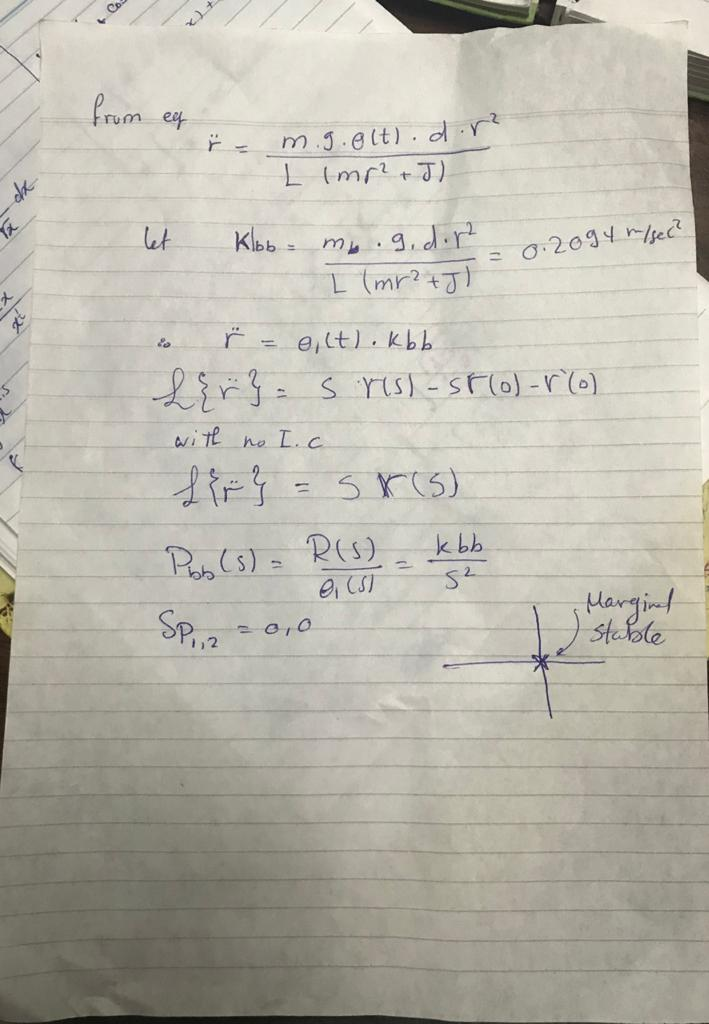 from eq
r̈ = m.g.θ(t).d.r² / L (mr² + J)
let Kbb = mb.g.d.r² / L (mr² + J) = 0.2094 m/sec²
∴ r̈ = θ₁(t).kbb
ℒ{r̈} = S r(s) - sr(0) - r˙(0)
with no I.c
ℒ{r̈} = S r(s)
Pbb(s) = R(s) / θ₁(s) = kbb / S²
SP₁,₂ = 0,0
Marginal
stable